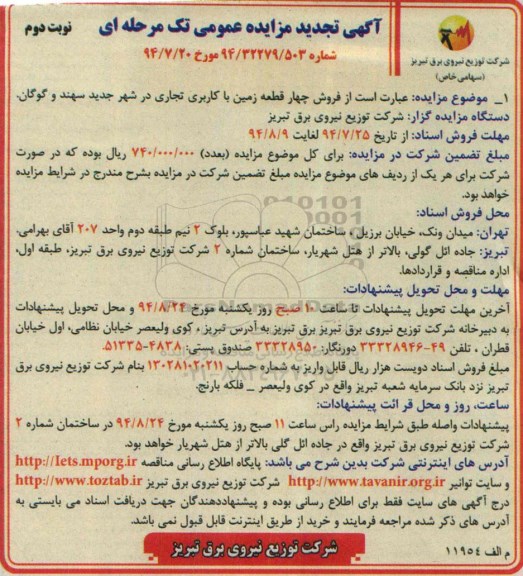 آگهی تجدید مزایده عمومی تک مرحله ای
نوبت دوم
شماره ۹۴/۳۲۲۷۹/۵۰۳ مورخ ۹۴/۷/۲۰
شرکت توزیع نیروی برق تبریز
(سهامی خاص)
۱_ موضوع مزایده: عبارت است از فروش چهار قطعه زمین با کاربری تجاری در شهر جدید سهند و گوگان.
دستگاه مزایده گزار: شرکت توزیع نیروی برق تبریز
مهلت فروش اسناد: از تاریخ ۹۴/۷/۲۵ لغایت ۹۴/۸/۹
مبلغ تضمین شرکت در مزایده: برای کل موضوع مزایده (بعدد) ۷۴۰/۰۰۰/۰۰۰ ریال بوده که در صورت
شرکت برای هر یک از ردیف های موضوع مزایده مبلغ تضمین شرکت در مزایده بشرح مندرج در شرایط مزایده
خواهد بود.
محل فروش اسناد:
تهران: میدان ونک، خیابان برزیل ، ساختمان شهید عباسپور، بلوک ۲ نیم طبقه دوم واحد ۲۰۷ آقای بهرامی.
تبریز: جاده ائل گولی، بالاتر از هتل شهریار، ساختمان شماره ۲ شرکت توزیع نیروی برق تبریز، طبقه اول،
اداره مناقصه و قراردادها.
مهلت و محل تحویل پیشنهادات:
آخرین مهلت تحویل پیشنهادات تا ساعت ۱۰ صبح روز یکشنبه مورخ ۹۴/۸/۲۴ و محل تحویل پیشنهادات
به دبیرخانه شرکت توزیع نیروی برق تبریز برق تبریز به آدرس تبریز ، کوی ولیعصر خیابان نظامی، اول خیابان
قطران ، تلفن ۴۹-۳۳۳۲۸۹۴۶ دورنگار: ۳۳۳۲۸۹۵۰ صندوق پستی: ۴۸۳۸-۵۱۳۳۵.
مبلغ فروش اسناد دویست هزار ریال قابل واریز به شماره حساب ۱۳۰۲۸۱۰۲۰۲۱۱ بنام شرکت توزیع نیروی برق
تبریز نزد بانک سرمایه شعبه تبریز واقع در کوی ولیعصر _ فلکه بارنج.
ساعت، روز و محل قرائت پیشنهادات:
پیشنهادات واصله طبق شرایط مزایده راس ساعت ۱۱ صبح روز یکشنبه مورخ ۹۴/۸/۲۴ در ساختمان شماره ۲
شرکت توزیع نیروی برق تبریز واقع در جاده ائل گلی بالاتر از هتل شهریار خواهد بود.
آدرس های اینترنتی شرکت بدین شرح می باشد: پایگاه اطلاع رسانی مناقصه http://Iets.mporg.ir
و سایت توانیر http://www.tavanir.org.ir شرکت توزیع نیروی برق تبریز http://www.toztab.ir
درج آگهی های سایت فقط برای اطلاع رسانی بوده و پیشنهاددهندگان جهت دریافت اسناد می بایستی به
آدرس های ذکر شده مراجعه فرمایند و خرید از طریق اینترنت قابل قبول نمی باشد.
م الف ۱۱۹۵۴
شرکت توزیع نیروی برق تبریز